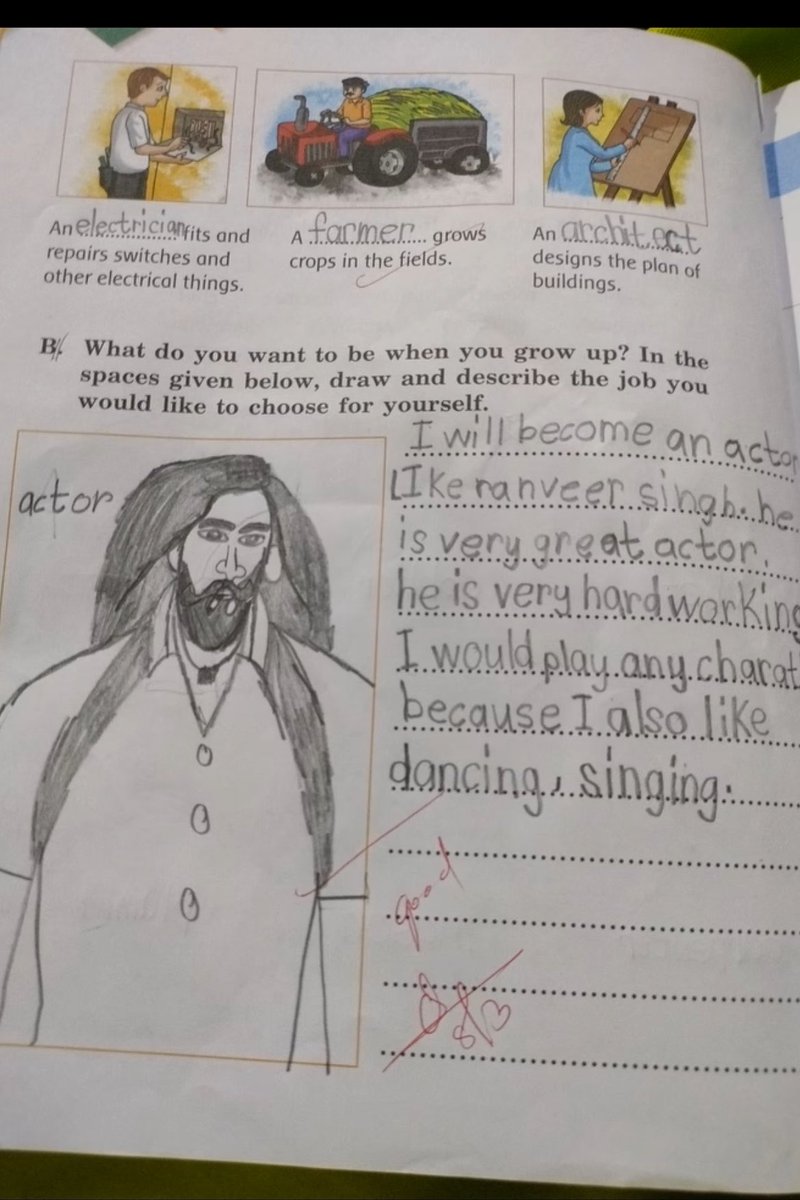 An electrician fits and
repairs switches and
other electrical things.
A farmer grows
crops in the fields.
An architect
designs the plan of
buildings.
B. What do you want to be when you grow up? In the
spaces given below, draw and describe the job you
would like to choose for yourself.
actor
I will become an actor
LIke ranveer singh. he
is very great actor.
he is very hard working
I would play any charat
because I also like
dancing, singing.
good
8/3